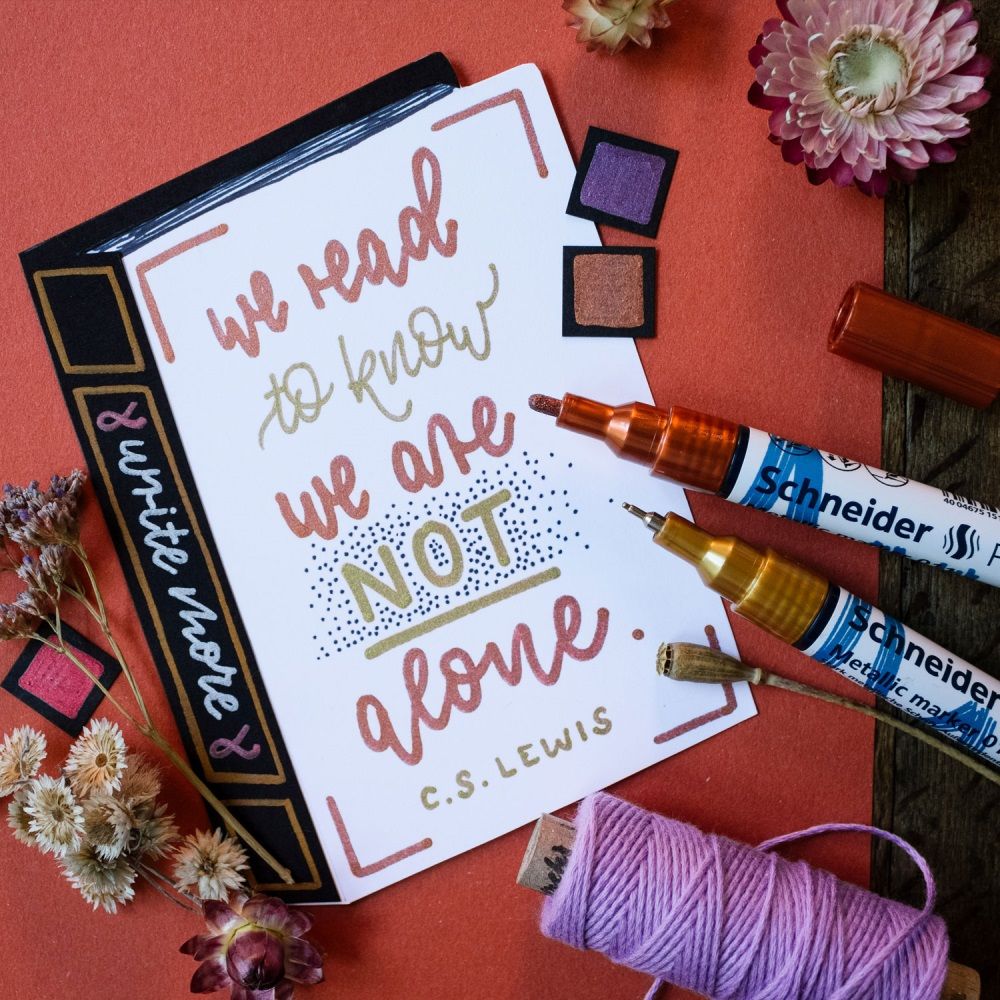 we read
to know
we are
NOT
alone.
C.S. LEWIS
write more
Schneider
40 04675 15
Schneider
Metallic marker